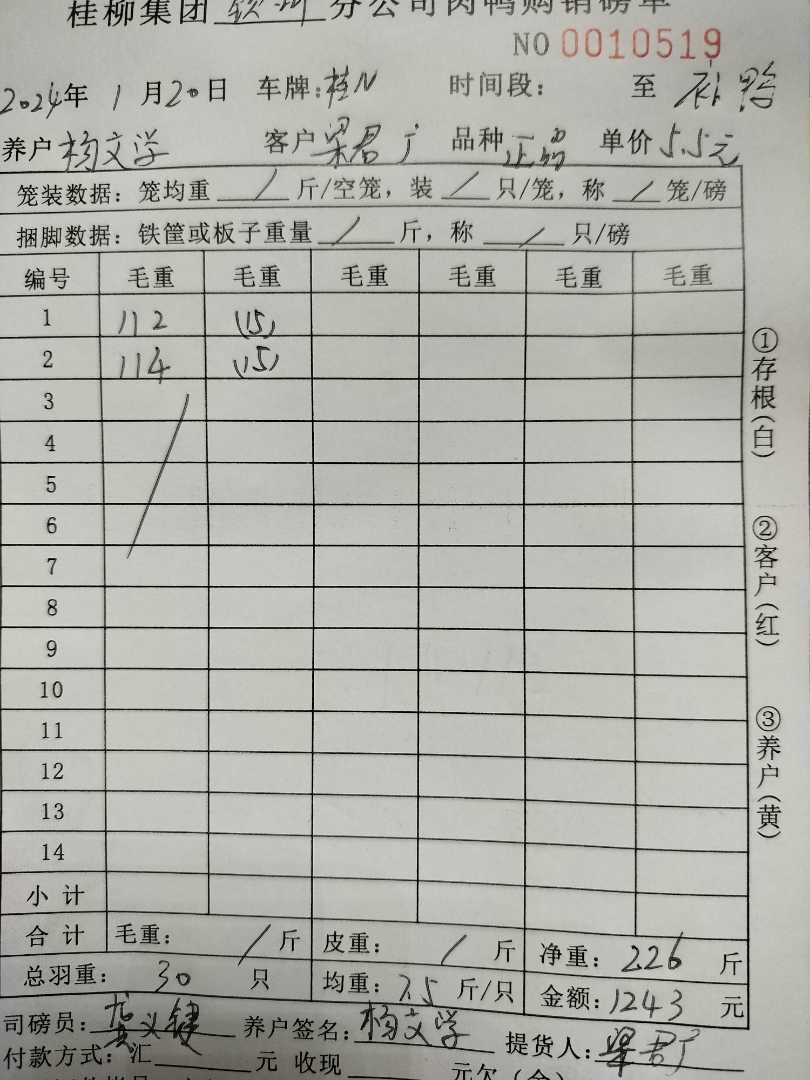 桂柳集团 钦州 分公司肉鸭购销磅单
NO 0010519
2024年 1月20日 车牌:桂N 时间段: 至
养户 杨文学 客户 梁君广 品种 正品 单价 5.5元
笼装数据:笼均重 / 斤/空笼,装 / 只/笼,称 / 笼/磅
捆脚数据:铁筐或板子重量 / 斤,称 / 只/磅
编号 毛重 毛重 毛重 毛重 毛重 毛重
1 112 (15)
2 114 (15)
3
4
5
6
7
8
9
10
11
12
13
14
小计
合计 毛重: / 斤 皮重: / 斤 净重: 226 斤
总羽重: 30 只 均重: 7.5 斤/只 金额: 1243 元
司磅员: 龚义键 养户签名: 杨文学 提货人: 梁君广
付款方式:汇 元 收现 元欠(余)
①存根(白)
②客户(红)
③养户(黄)